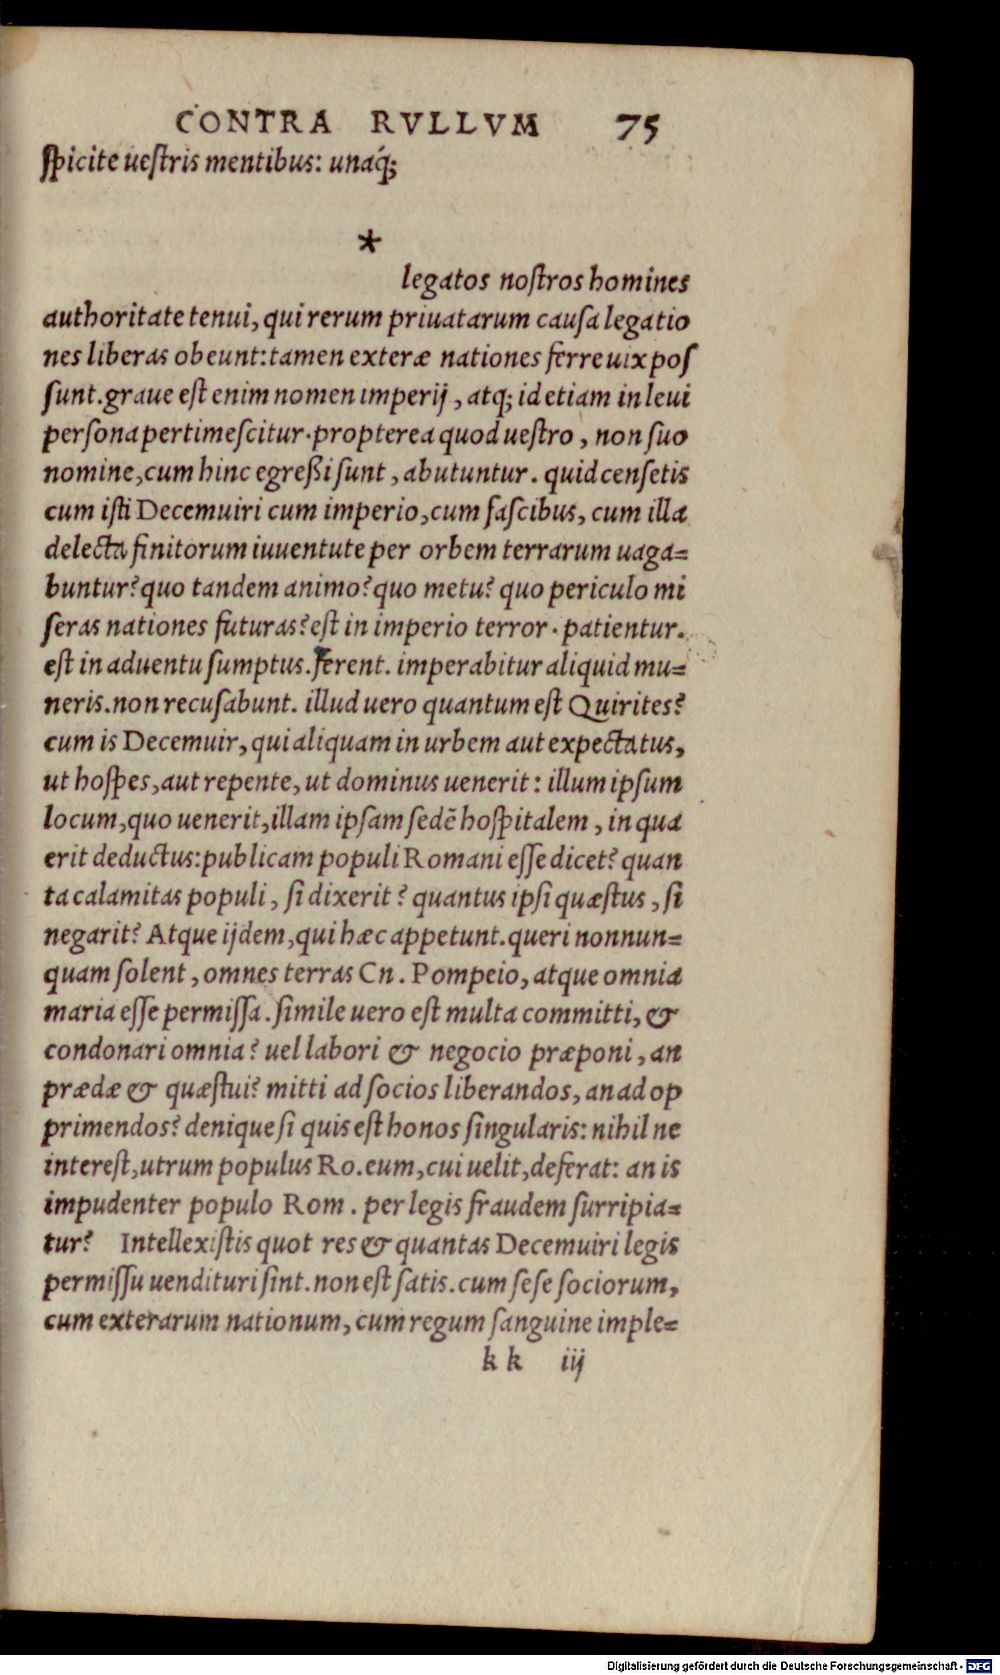 CONTRA RVLLVM 75
ſpicite ueſtris mentibus: unaq́;
*
legatos noſtros homines
authoritate tenui, qui rerum priuatarum cauſa legatio
nes liberas obeunt: tamen exteræ nationes ferre uix poſ
ſunt. graue eſt enim nomen imperij, atq; id etiam in leui
perſona pertimeſcitur. propterea quod ueſtro, non ſuo
nomine, cum hinc egreßi ſunt, abutuntur. quid cenſetis
cum iſti Decemuiri cum imperio, cum faſcibus, cum illa
delecta finitorum iuuentute per orbem terrarum uaga=
buntur? quo tandem animo? quo metu? quo periculo mi
ſeras nationes futuras? eſt in imperio terror. patientur.
eſt in aduentu ſumptus. ferent. imperabitur aliquid mu=
neris. non recuſabunt. illud uero quantum eſt Quirites?
cum is Decemuir, qui aliquam in urbem aut expectatus,
ut hoſpes, aut repente, ut dominus uenerit: illum ipſum
locum, quo uenerit, illam ipſam ſedē hoſpitalem, in qua
erit deductus: publicam populi Romani eſſe dicet? quan
ta calamitas populi, ſi dixerit? quantus ipſi quæſtus, ſi
negarit? Atque ijdem, qui hæc appetunt. queri nonnun=
quam ſolent, omnes terras Cn. Pompeio, atque omnia
maria eſſe permiſſa. ſimile uero eſt multa committi, &
condonari omnia? uel labori & negocio præponi, an
prædæ & quæſtui? mitti ad ſocios liberandos, an ad op
primendos? denique ſi quis eſt honos ſingularis: nihil ne
intereſt, utrum populus Ro. eum, cui uelit, deferat: an is
impudenter populo Rom. per legis fraudem ſurripia=
tur? Intellexiſtis quot res & quantas Decemuiri legis
permiſſu uendituri ſint. non eſt ſatis. cum ſeſe ſociorum,
cum exterarum nationum, cum regum ſanguine imple=
kk iij
Digitalisierung gefördert durch die Deutsche Forschungsgemeinschaft - DFG